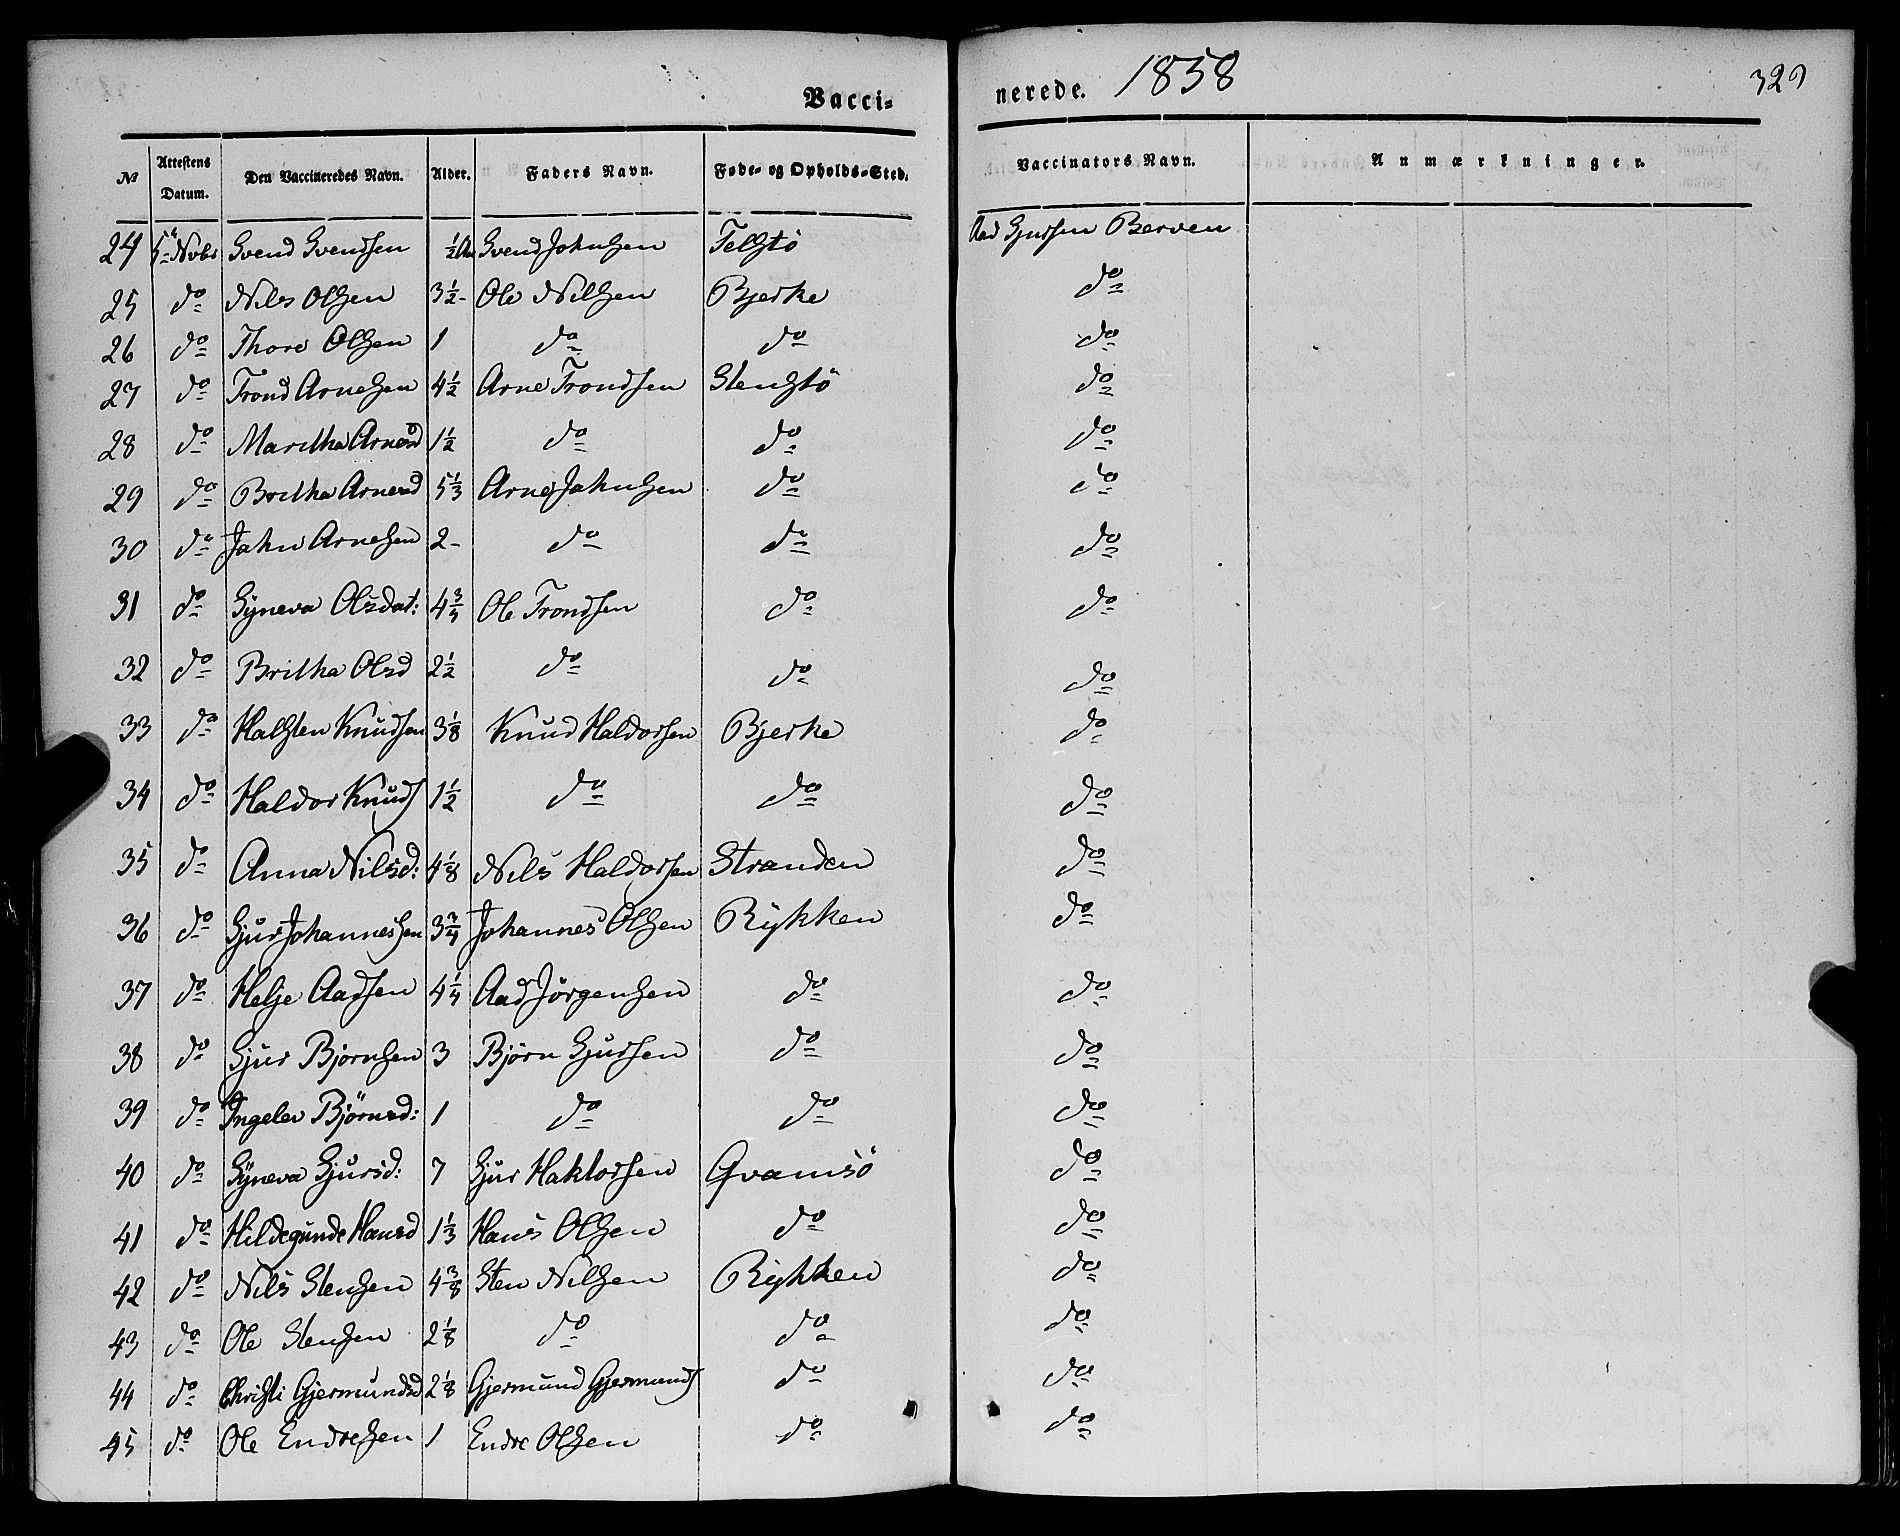 Vacci= nerede. 1858 329
No Attestens Datum. Den Vaccineredes Navn. Alder. Faders Navn. Føde- og Opholds-Sted. Vaccinators Navn. Anmærkninger.
24 5te Novbr Svend Svendsen ½ Aar Svend Johnsen Telstö Aad Sjursen Berven
25 do Nils Olsen 3½ - Ole Nilsen Bjerke do
26 do Thore Olsen 1 do do do
27 do Trond Arnesen 4½ Arne Trondsen Stenstö do
28 do Maritha Arnesd 1½ do do do
29 do Britha Arnesd 5⅓ Arne Johnsen do do
30 do John Arnesen 2 - do do do
31 do Syneva Olsdat: 4¾ Ole Trondsen do do
32 do Britha Olsd 2½ do do do
33 do Halsten Knudsen 3⅛ Knud Haldorsen Bjerke do
34 do Haldor Knuds 1½ do do do
35 do Anna Nilsd: 4⅛ Nils Haldorsen Stranden do
36 do Sjur Johannessen 3¾ Johannes Olsen Rykken do
37 do Helje Aadsen 4¼ Aad Jörgensen do do
38 do Sjur Bjornsen 3 Björn Sjursen do do
39 do Ingelev Björnsd: 1 do do do
40 do Syneva Sjursd: 7 Sjur Haktorsen Qvamsö do
41 do Hildegunde Hansd 1⅓ Hans Olsen do do
42 do Nils Stensen 4⅜ Sten Nilsen Rykken do
43 do Ole Stensen 2⅛ do do do
44 do Christi Gjermundsd 2⅛ Gjermund Gjermunds do do
45 do Ole Endresen 1 Endre Olsen do do